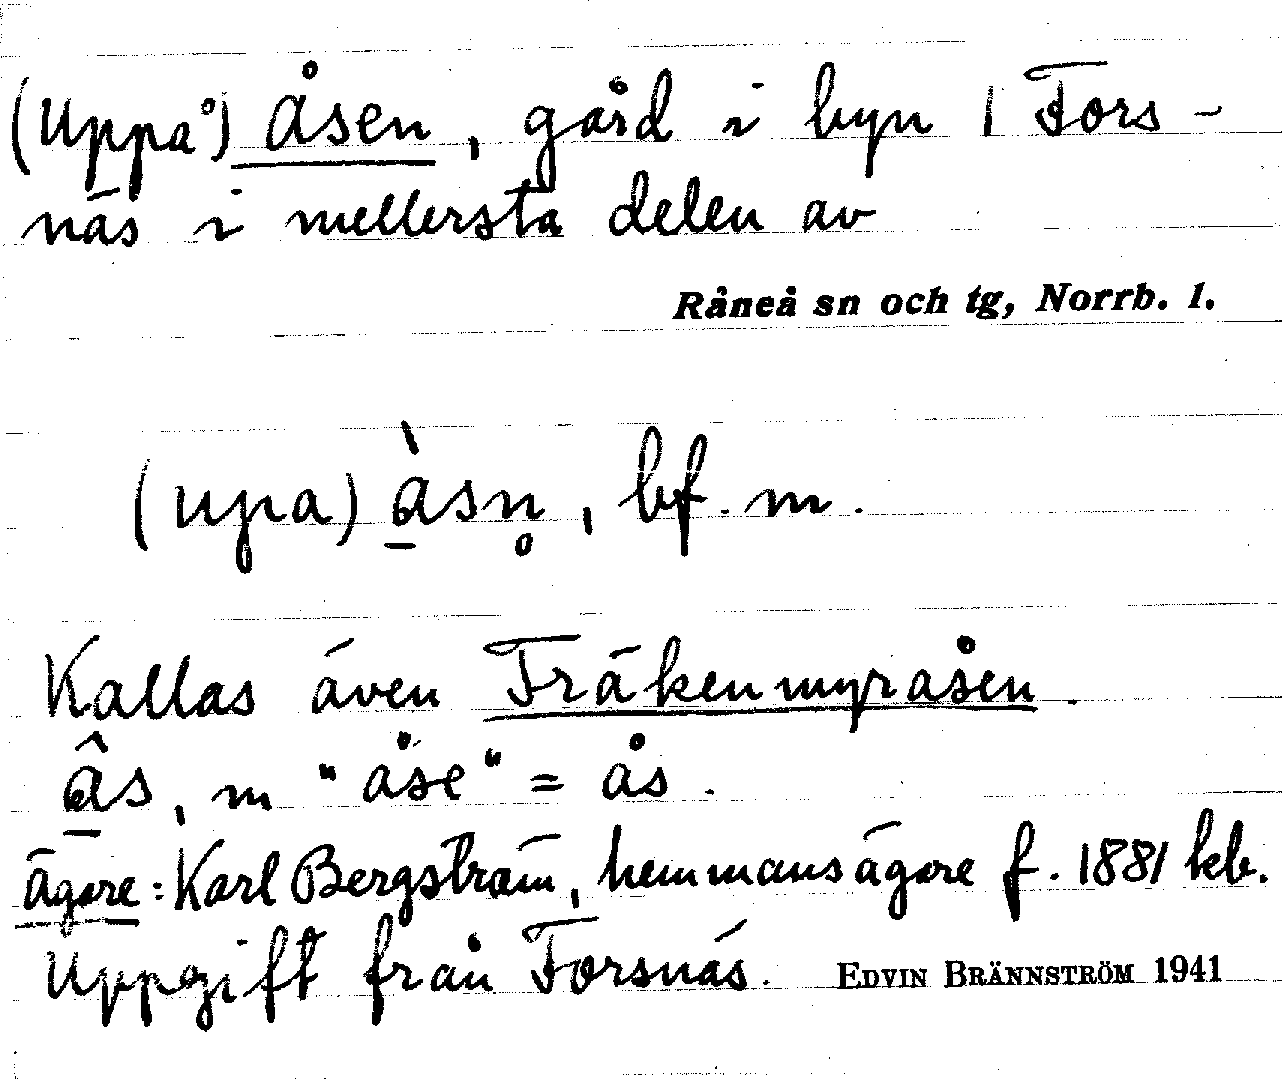 (Uppå) Åsen, gård i byn 1 Fors-
näs i mellersta delen av
Råneå sn och tg, Norrb. l.
(upa) à̱sn̥, bf. m.
Kallas även Fräkenmyråsen.
â̱s, m "åse" = ås.
Ägare: Karl Bergström, hemmansägare f. 1881 hb.
Uppgift från Forsnäs. EDVIN BRÄNNSTRÖM 1941